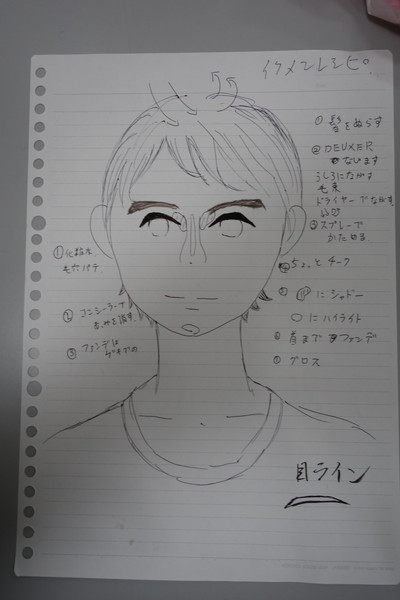 イケメンレシピ。
① 髪をぬらす
② DEUXER
でなじます
うしろにながす
毛束
ドライヤーでながす
③ スプレーで
かためる
④ ちょっとチーク
⑤ にシャドー
にハイライト
⑥ 首まで ファンデ
⑦ グロス
① 化粧水
毛穴パテ
② コンシーラーで
③ ファンデは
目ライン